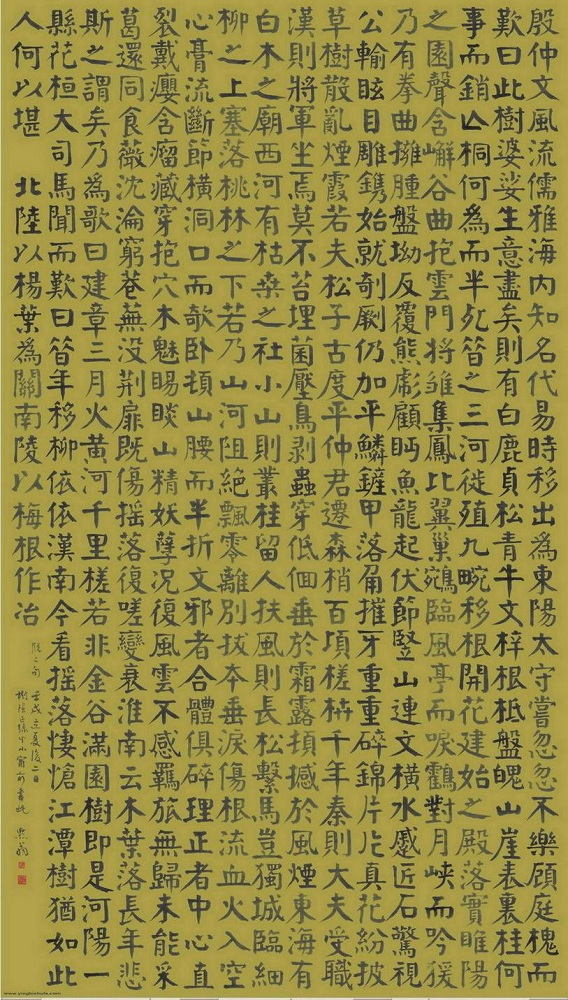 殷仲文風流儒雅海内知名代易時移出為東陽太守嘗忽忽不樂顧庭槐而
歎曰此樹婆娑生意盡矣則有白鹿貞松青牛文梓根柢盤魄山崖表裏桂何
事而銷亾桐何為而半死昝之三河徙殖九畹移根開花建始之殿落實睢陽
之園聲含嶰谷曲抱雲門將雛集鳳比翼巢鵷臨風亭而唳鶴對月峽而吟猨
乃有拳曲擁腫盤坳反覆熊彪顧眄魚龍起伏節豎山連文橫水蹙匠石驚視
公輸眩目雕鐫始就剞劂仍加平鱗鏟甲落角摧牙重重碎錦片片真花紛披
草樹散亂煙霞若夫松子古度平仲君遷森梢百頃槎枿千年秦則大夫受職
漢則將軍坐焉莫不苔埋菌壓鳥剥蟲穿低佪垂於霜露頓撼於風煙東海有
白木之廟西河有枯桒之社小山則叢桂留人扶風則長松繫馬豈獨城臨細
柳之上塞落桃林之下若乃山河阻絶飄零離別拔夲垂淚傷根流血火入空
心膏流斷節橫洞口而欹卧頓山腰而半折文邪者合體俱碎理正者中心直
裂戴癭含瘤藏穿抱穴木魅睗睒山精妖孽況復風雲不感羈旅無歸未能采
葛還同食薇沈淪窮巷蕪没荆扉既傷搖落復嗟變衰淮南云木葉落長年悲
斯之謂矣乃為歌曰建章三月火黄河千里槎若非金谷滿園樹即是河陽一
縣花桓大司馬聞而歎曰昝年移柳依依漢南今看搖落悽愴江潭樹猶如此
人何以堪 北陸以楊葉為關南陵以梅根作冶
脱二句 壬戌立夏後二日
www.yingbishufa.com